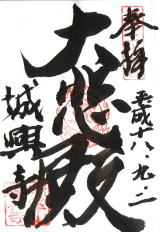 奉拝
平成十八・九・二
大悲殿
城興寺